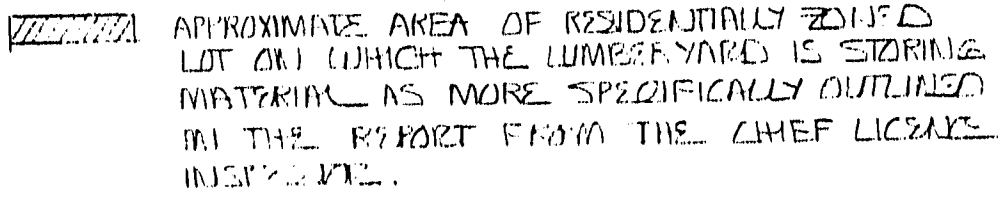 APPROXIMATE AREA OF RESIDENTIALLY ZONED
LOT ON WHICH THE LUMBER YARD IS STORING
MATERIAL AS MORE SPECIFICALLY OUTLINED
IN THE REPORT FROM THE CHIEF LICENSE
INSPECTOR.